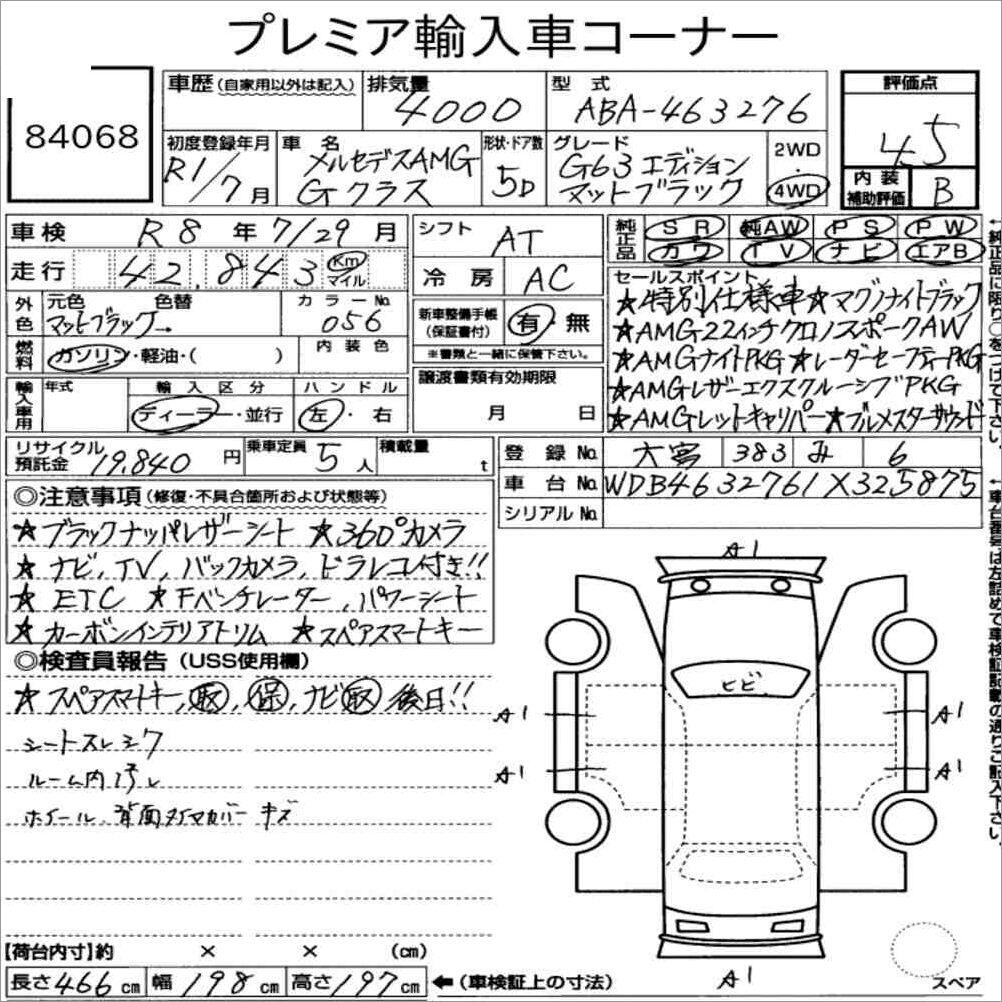 プレミア輸入車コーナー
84068
車歴 (自家用以外は記入) 排気量 4000 型式 ABA-463276
評価点 4.5
初度登録年月 R1/7月 車名 メルセデスAMG Gクラス 形状・ドア数 5D グレード G63 エディション マットブラック 2WD・4WD
内装補助評価 B
車検 R8年7/29月 シフト AT
純正品 SR 純AW PS PW
カワ TV ナビ エアB
走行 42,843 Km マイル 冷房 AC
外色 元色 色替 マットブラック→ カラーNo. 056
新車整備手帳 (保証書付) 有・無
※書類と一緒に保管下さい。
燃料 ガソリン・軽油・( ) 内装色
譲渡書類有効期限 月 日
輸入車用 年式 輸入区分 ディーラー・並行 ハンドル 左・右
セールスポイント
★特別仕様車★マグノナイトブラック
★AMG22インチクロノスポークAW
★AMGナイトPKG★レーダーセーフティーPKG
★AMGレザーエクスクルーシブPKG
★AMGレットキャリパー★ブルメスターサウンド
リサイクル預託金 19,840円 乗車定員 5人 積載量 t
登録No. 大宮 383 み 6
車台No. WDB4632761X325875
シリアルNo.
◎注意事項(修復・不具合箇所および状態等)
★ブラックナッパレザーシート ★360°カメラ
★ナビ, TV, バックカメラ, ドラレコ付き!!
★ETC ★Fベンチレーター, パワーシート
★カーボンインテリアトリム ★スペアスマートキー
◎検査員報告(USS使用欄)
★スペアスマートキー, 取, 保, ナビ取 後日!!
シートスレ シワ
ルーム内汚レ
ホイール, 背面タイヤカバー キズ
A1
ヒビ
A1 A1
A1 A1
A1
スペア
【荷台内寸】約 × × (cm)
長さ466cm 幅198cm 高さ197cm ←(車検証上の寸法)
←純正品に限り○をつけて下さい。
←車台番号は左詰めで車検証記載の通りご記入下さい。